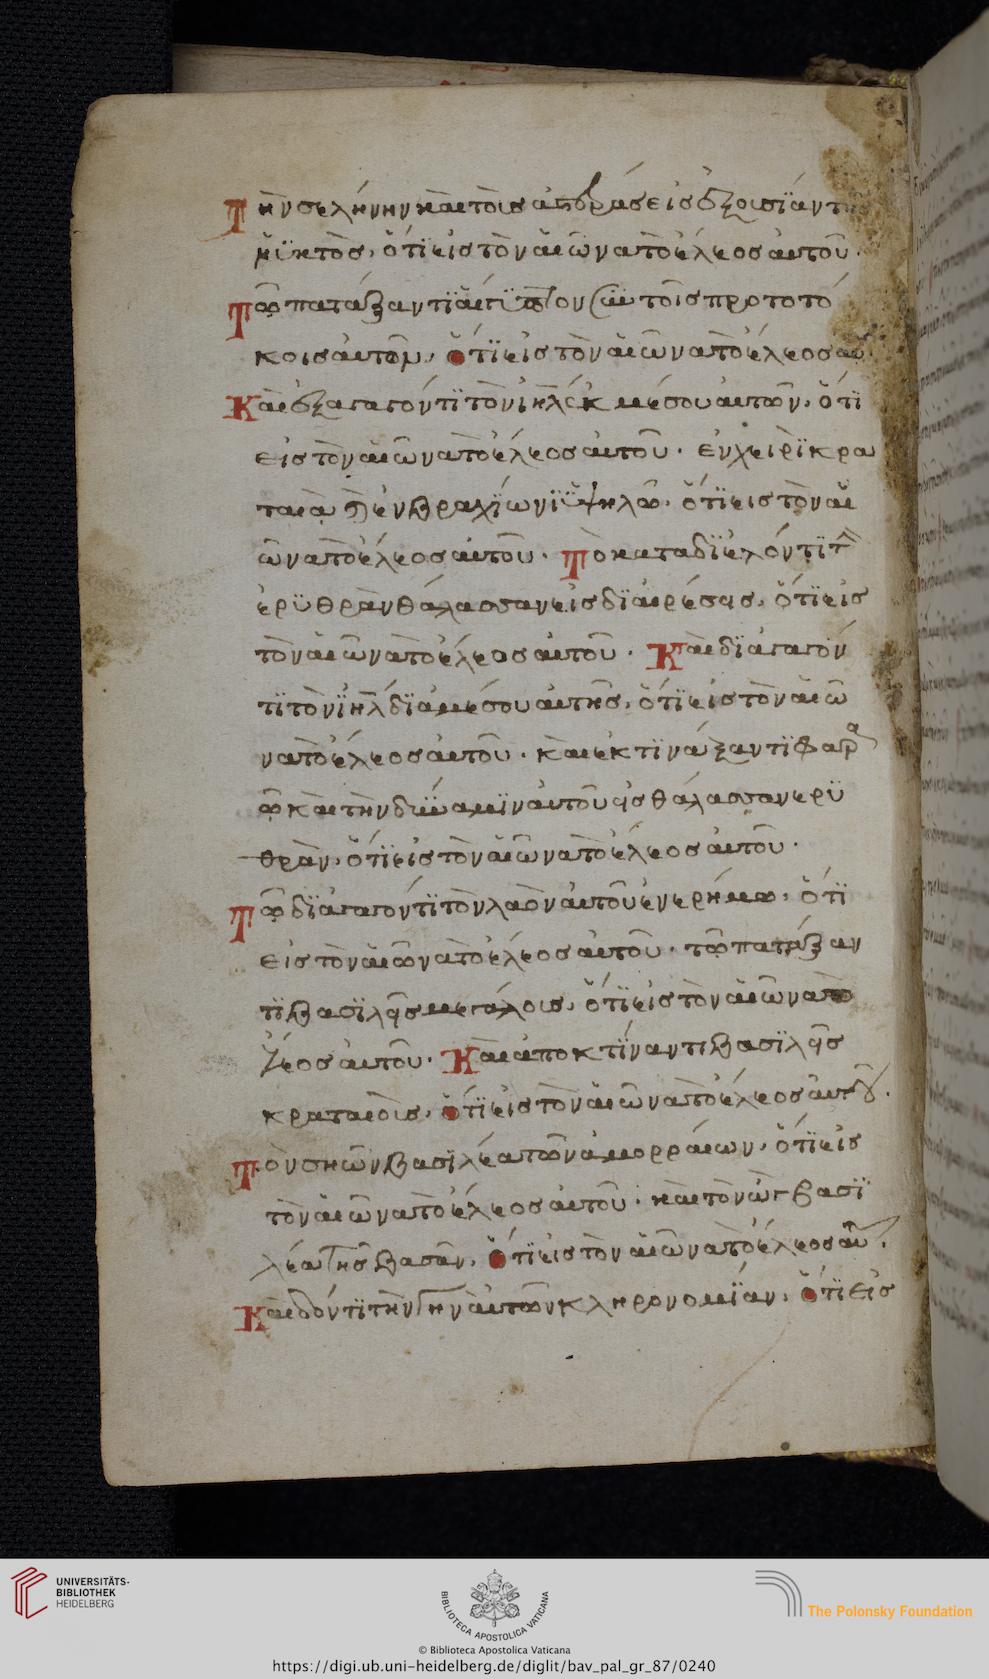 Τὴν σελήνην καὶ τοὺς ἀστέρας εἰς ἐξουσίαν τῆς
νϋκτὸς, ὅτϊ εἰς τὸν αἰῶνα τὸ ἔλεος αὐτοῦ.
Τῶ πατάξαντϊ αἴγϋπτον σὺν τοῖς πρωτοτό
κοις αὐτῶν, ὅτϊ εἰς τὸν αἰῶνα τὸ ἔλεος αὐτοῦ
Καὶ ἐξαγαγόντϊ τὸν ἰηλ ἐκ μέσου αὐτῶν, ὅτϊ
εἰς τὸν αἰῶνα τὸ ἔλεος αὐτοῦ. ἐν χειρϊ κρα
ταιᾶ καὶ ἐν βραχϊωνϊ ὑψηλῶ, ὅτϊ εἰς τὸν αἰ
ῶνα τὸ ἔλεος αὐτοῦ. Τῶ καταδϊελόντϊ τὴν
ἐρϋθρὰν θάλασσαν εἰς δϊαιρέσεις, ὅτϊ εἰς
τὸν αἰῶνα τὸ ἔλεος αὐτοῦ. Καὶ δϊαγαγόν
τϊ τὸν ϊηλ δϊὰ μέσου αὐτῆς, ὅτϊ εἰς τὸν αἰῶ
να τὸ ἔλεος αὐτοῦ. καὶ ἐκτϊνάξαντϊ φαρα
ῶ καὶ τὴν δύναμϊν αὐτοῦ εἰς θάλασσαν ερϋ
θρὰν, ὅτϊ εἰς τὸν αἰῶνα τὸ ἔλεος αὐτοῦ.
Τῶ δϊαγαγόντϊ τὸν λαὸν αὐτοῦ ἐν ερήμω, ὅτϊ
εἰς τὸν αἰῶνα τὸ ἔλεος αὐτοῦ. τῶ πατάξαν
τϊ βασϊλεῖς μεγάλους, ὅτϊ εἰς τὸν αἰῶνα τὸ
ἔλεος αὐτοῦ. Καὶ ἀποκτϊναντι βασϊλεῖς
κραταιοὺς, ὅτϊ εἰς τὸν αἰῶνα τὸ ἔλεος αὐτοῦ.
Τὸν σηὼν βασϊλέα τῶν ἀμορραίων, ὅτϊ εἰς
τὸν αἰῶνα τὸ ἔλεος αὐτοῦ. καὶ τὸν ὢγ βασϊ
λέα τῆς βασὰν, ὅτϊ εἰς τὸν αἰῶνα τὸ ἔλεος αὐτοῦ.
Καὶ δόντϊ τὴν γῆν αὐτῶν κληρονομϊαν, ὅτϊ εἰς
UNIVERSITÄTS-
BIBLIOTHEK
HEIDELBERG
BIBLIOTECA APOSTOLICA VATICANA
The Polonsky Foundation
© Biblioteca Apostolica Vaticana
https://digi.ub.uni-heidelberg.de/diglit/bav_pal_gr_87/0240